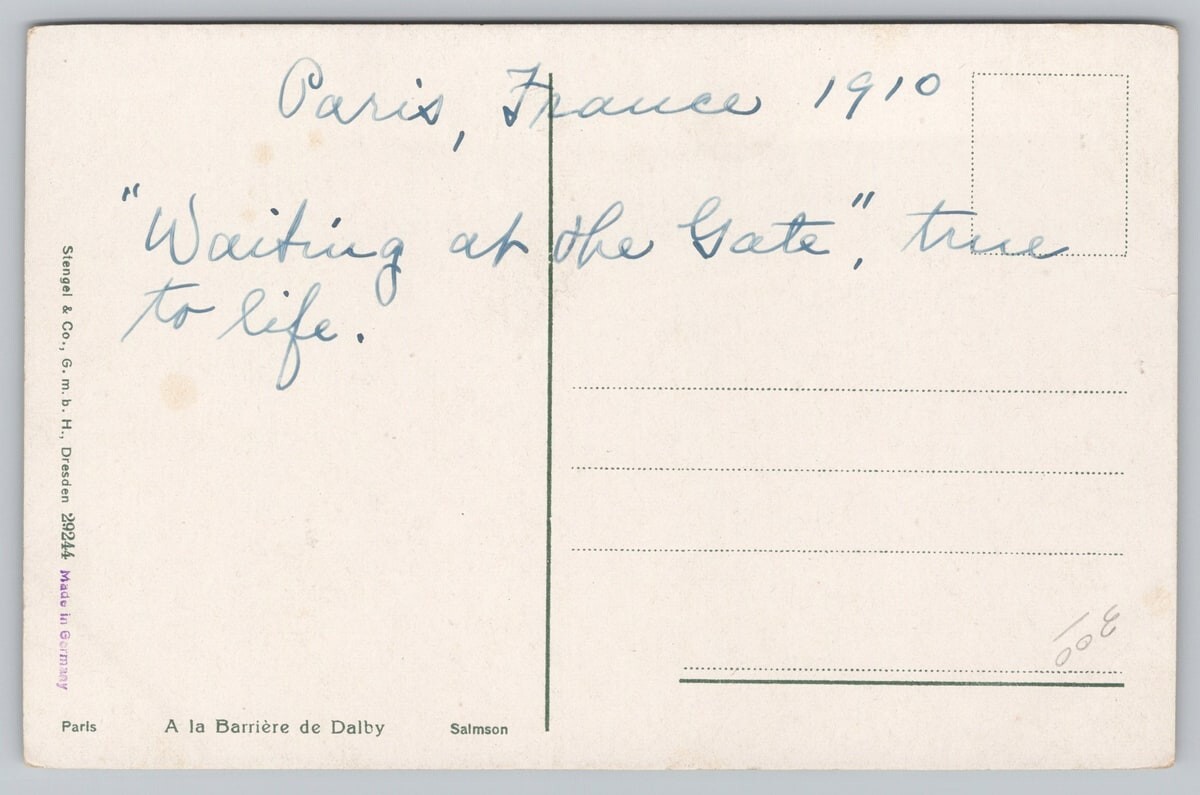 Paris, France 1910
"Waiting at the Gate", true
to life.
Stengel & Co., G. m. b. H., Dresden 29244 Made in Germany
Paris A la Barrière de Dalby Salmson